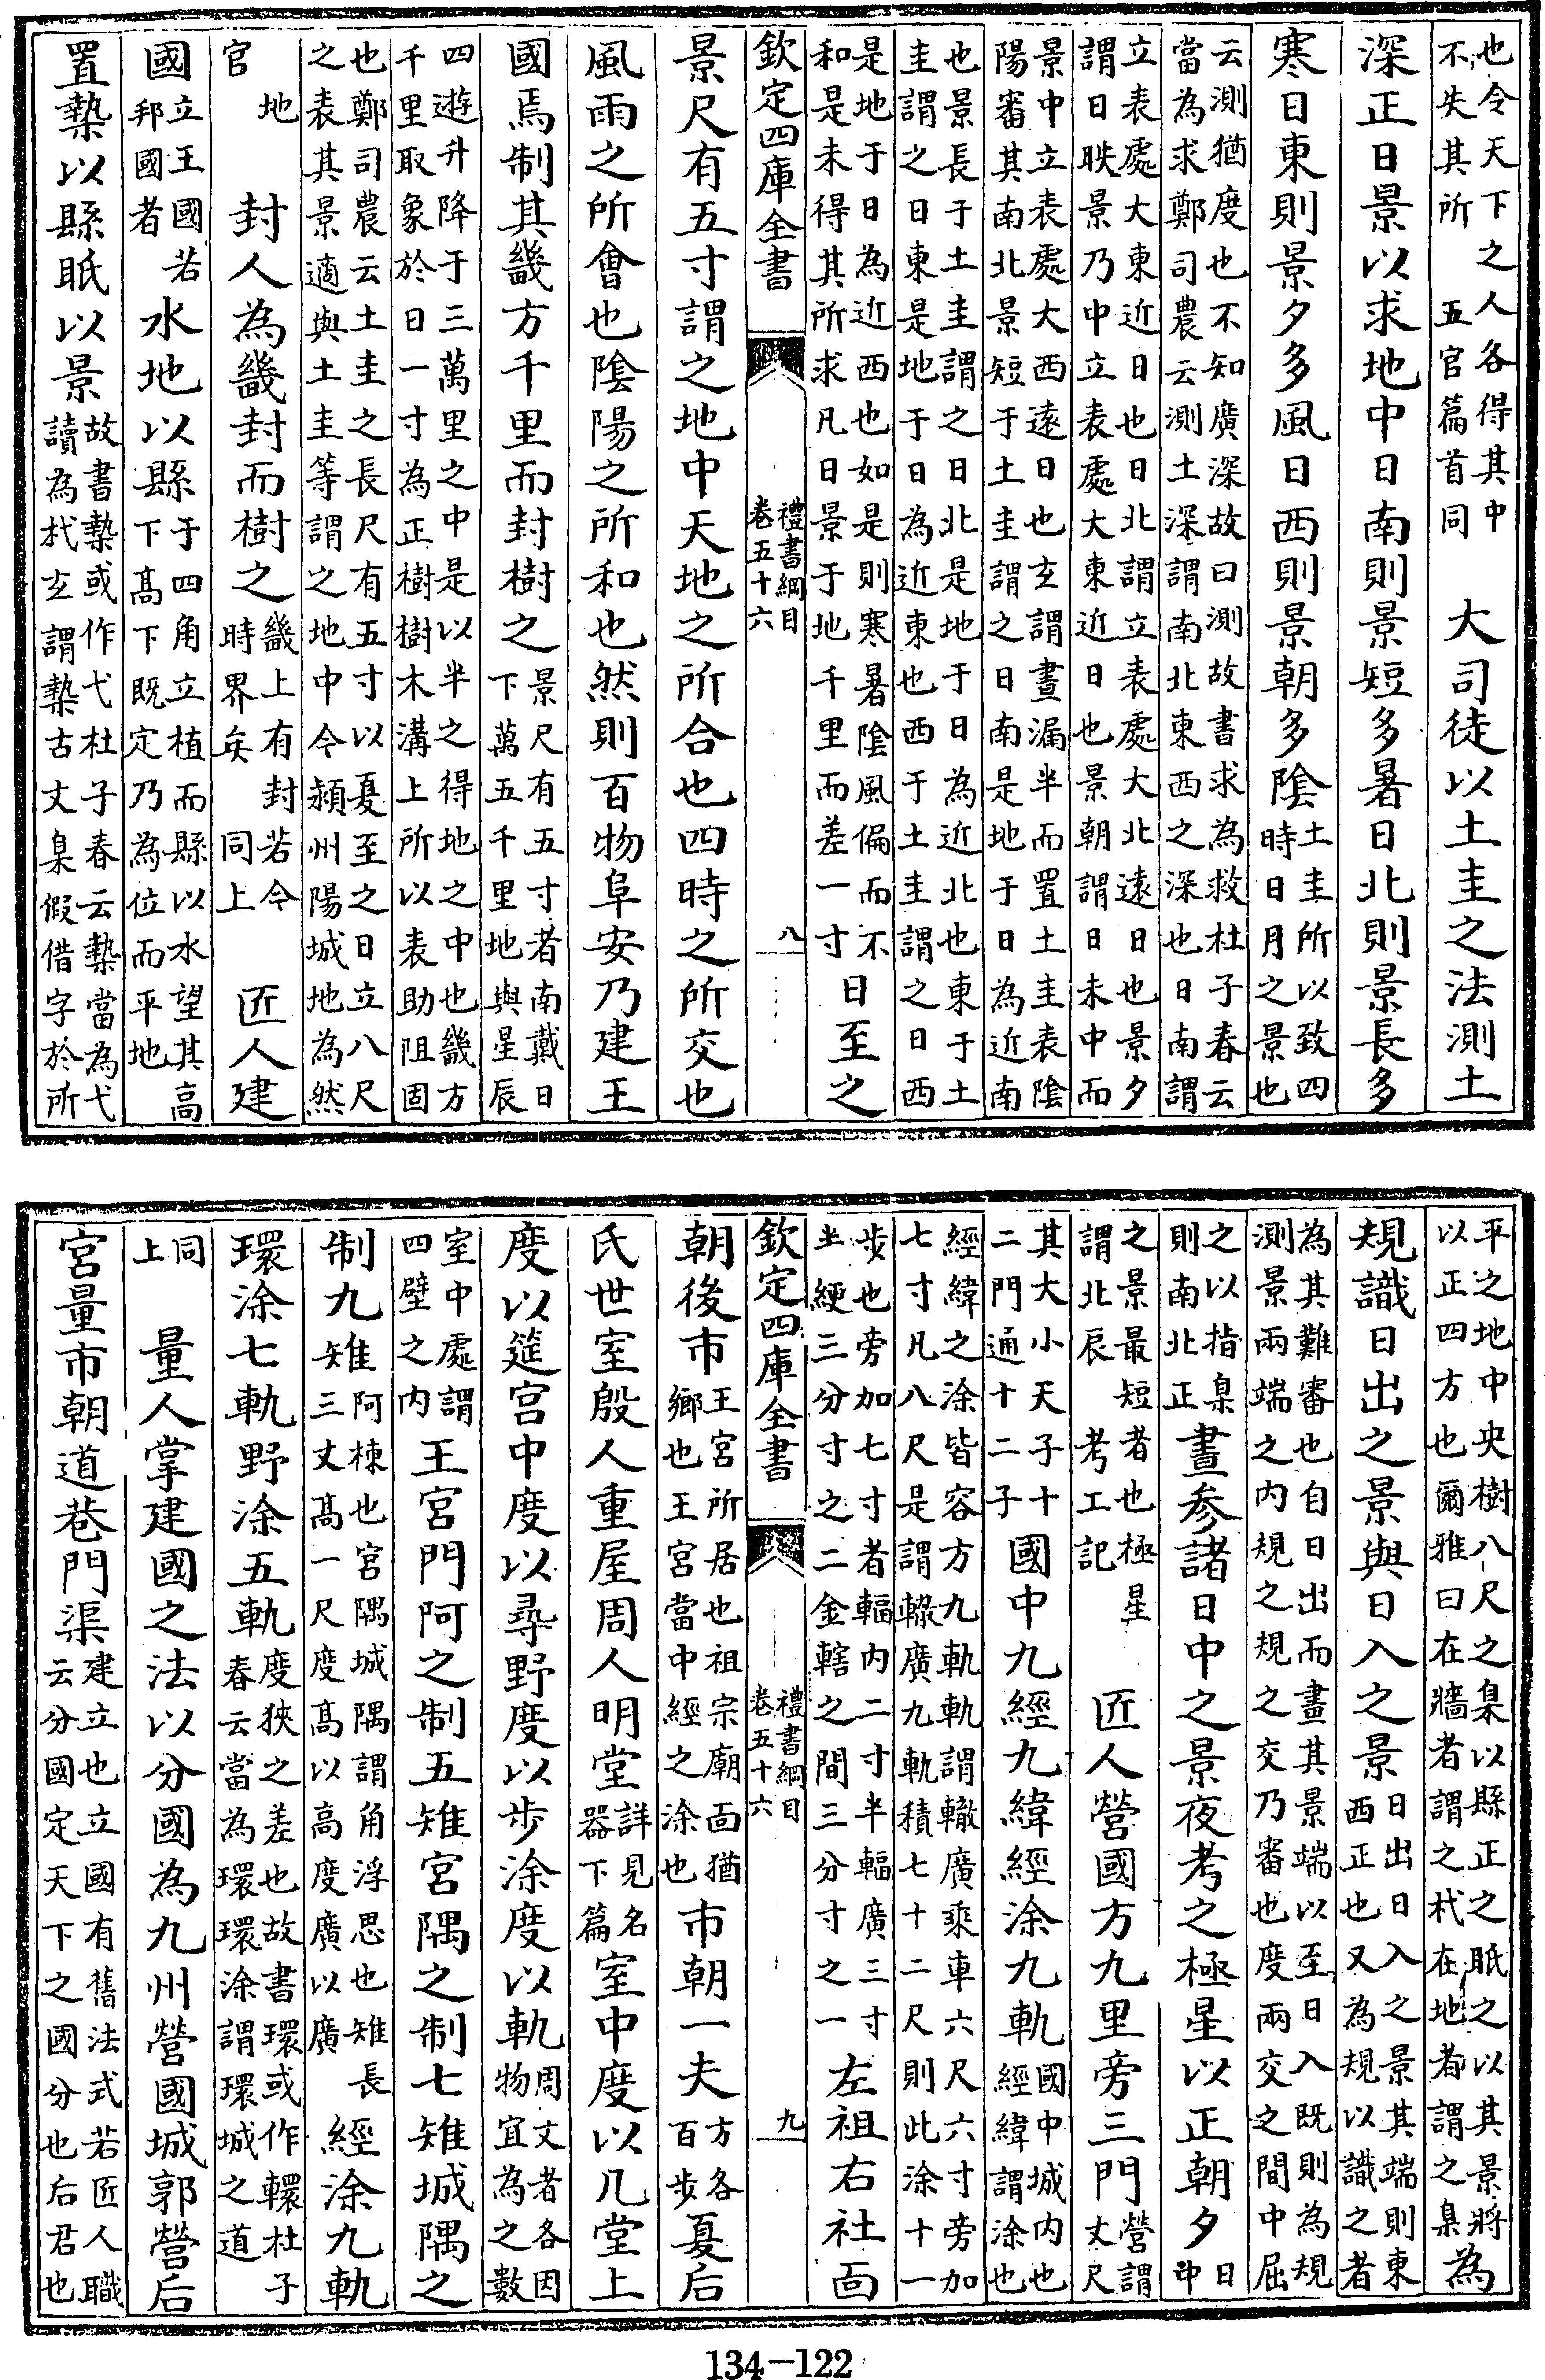 也令天下之人各得其中不失其所　五官篇首同　大司徒以土圭之法測土
深正日景以求地中日南則景短多暑日北則景長多
寒日東則景夕多風日西則景朝多陰土圭所以致四時日月之景也
云測猶度也不知廣深故曰測故書求為救杜子春云當為求鄭司農云測土深謂南北東西之深也日南謂
立表處大東近日也日北謂立表處大北遠日也景夕謂日昳景乃中立表處大東近日也景朝謂日未中而
景中立表處大西遠日也玄謂晝漏半而置土圭表陰陽審其南北景短于土圭謂之日南是地于日為近南
也景長于土圭謂之日北是地于日為近北也東于土圭謂之日東是地于日為近東也西于土圭謂之日西
是地于日為近西也如是則寒暑陰風偏而不和是未得其所求凡日景于地千里而差一寸日至之
欽定四庫全書　禮書綱目卷五十六　八
景尺有五寸謂之地中天地之所合也四時之所交也
風雨之所會也陰陽之所和也然則百物阜安乃建王
國焉制其畿方千里而封樹之景尺有五寸者南戴日下萬五千里地與星辰
四遊升降于三萬里之中是以半之得地之中也畿方千里取象於日一寸為正樹樹木溝上所以表助阻固
也鄭司農云土圭之長尺有五寸以夏至之日立八尺之表其景適與土圭等謂之地中今潁州陽城地為然
地官　封人為畿封而樹之畿上有封若今時界矣　同上　匠人建
國立王國若邦國者水地以縣于四角立植而縣以水望其高下高下既定乃為位而平地
置槷以縣眡以景故書槷或作弋杜子春云槷當為弋讀為杙玄謂槷古文臬假借字於所
平之地中央樹八尺之臬以縣正之眡之以其景將以正四方也爾雅曰在牆者謂之杙在地者謂之臬為
規識日出之景與日入之景日出日入之景其端則東西正也又為規以識之者
為其難審也自日出而畫其景端以至日入既則為規測景兩端之內規之規之交乃審也度兩交之間中屈
之以指臬則南北正晝參諸日中之景夜考之極星以正朝夕日中
之景最短者也極星謂北辰　考工記　匠人營國方九里旁三門營謂丈尺
其大小天子十二門通十二子國中九經九緯經涂九軌國中城内也經緯謂涂也
經緯之涂皆容方九軌軌謂轍廣乘車六尺六寸旁加七寸凡八尺是謂轍廣九軌積七十二尺則此涂十一
步也旁加七寸者輻内二寸半輻廣三寸半綆三分寸之二金轄之間三分寸之一左祖右社面
欽定四庫全書　禮書綱目卷五十六　九
朝後市王宮所居也祖宗廟面猶鄉也王宮當中經之涂也市朝一夫方各百步夏后
氏世室殷人重屋周人明堂詳見名器下篇室中度以几堂上
度以筵宮中度以尋野度以步涂度以軌周文者各因物宜為之數
室中處謂四壁之内王宮門阿之制五雉宮隅之制七雉城隅之
制九雉阿棟也宮隅城隅謂角浮思也雉長三丈高一尺度高以高度廣以廣經涂九軌
環涂七軌野涂五軌度狹之差也故書環或作轘杜子春云當為環環涂謂環城之道
同上　量人掌建國之法以分國為九州營國城郭營后
宮量市朝道巷門渠建立也立國有舊法式若匠人職云分國定天下之國分也后君也
134-122